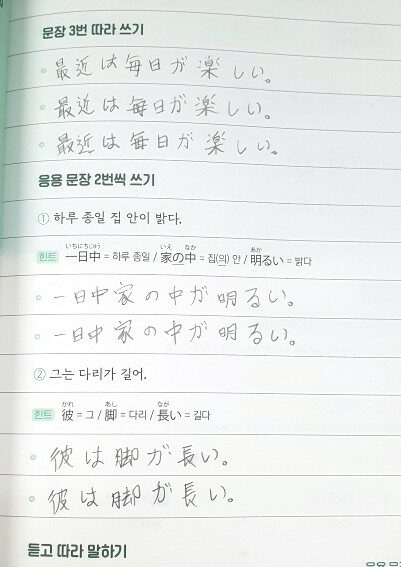 문장 3번 따라 쓰기
最近は毎日が楽しい。
最近は毎日が楽しい。
最近は毎日が楽しい。
응용 문장 2번씩 쓰기
① 하루 종일 집 안이 밝다.
いちにちじゅう いえ なか あか
힌트 一日中 = 하루 종일 / 家の中 = 집(의) 안 / 明るい = 밝다
一日中家の中が明るい。
一日中家の中が明るい。
② 그는 다리가 길어.
かれ あし なが
힌트 彼 = 그 / 脚 = 다리 / 長い = 길다
彼は脚が長い。
彼は脚が長い。
듣고 따라 말하기